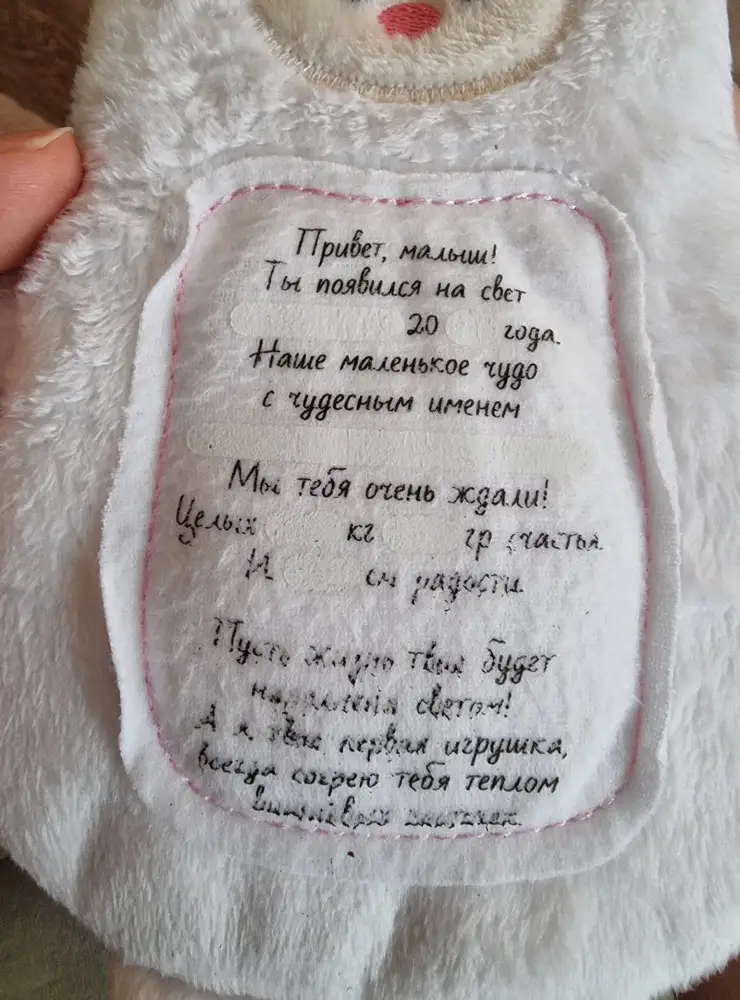 Привет, малыш!
Ты появился на свет
20 года.
Наше маленькое чудо
с чудесным именем
Мы тебя очень ждали!
Целых кг гр счастья
И см радости
Пусть жизнь твоя будет
наполнена светом!
А я твоя первая игрушка,
всегда согрею тебя теплом
вишнёвых косточек.